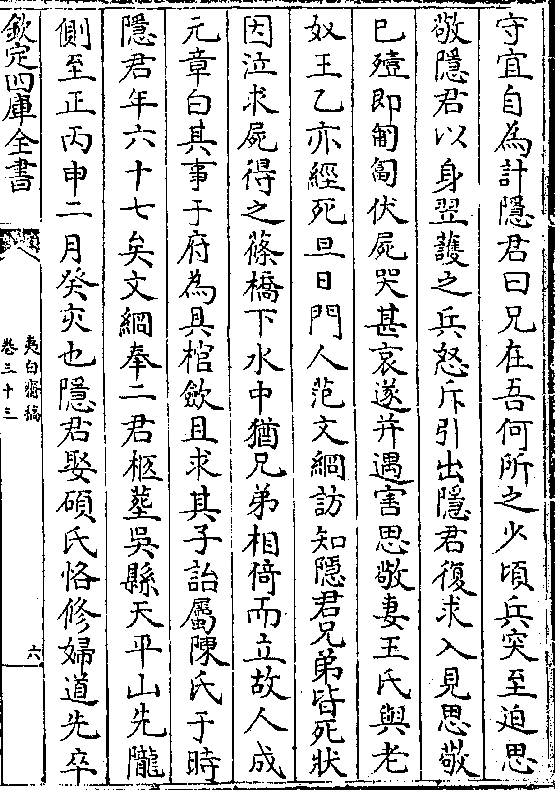 守宜自為計隱君曰兄在吾何所之少頃兵突至迫思
敬隱君以身翌護之兵怒斥引出隱君復求入見思敬
已殪即匍匐伏屍哭甚哀遂并遇害思敬妻王氏與老
奴王乙亦經死旦日門人范文綱訪知隱君兄弟皆死狀
因泣求屍得之篠橋下水中猶兄弟相倚而立故人成
元章白其事于府為具棺斂且求其子詒屬陳氏于時
隱君年六十七矣文綱奉二君柩塟吳縣天平山先隴
側至正丙申二月癸亥也隱君娶碩氏恪修婦道先卒
欽定四庫全書
夷白齋稿
卷三十三
六